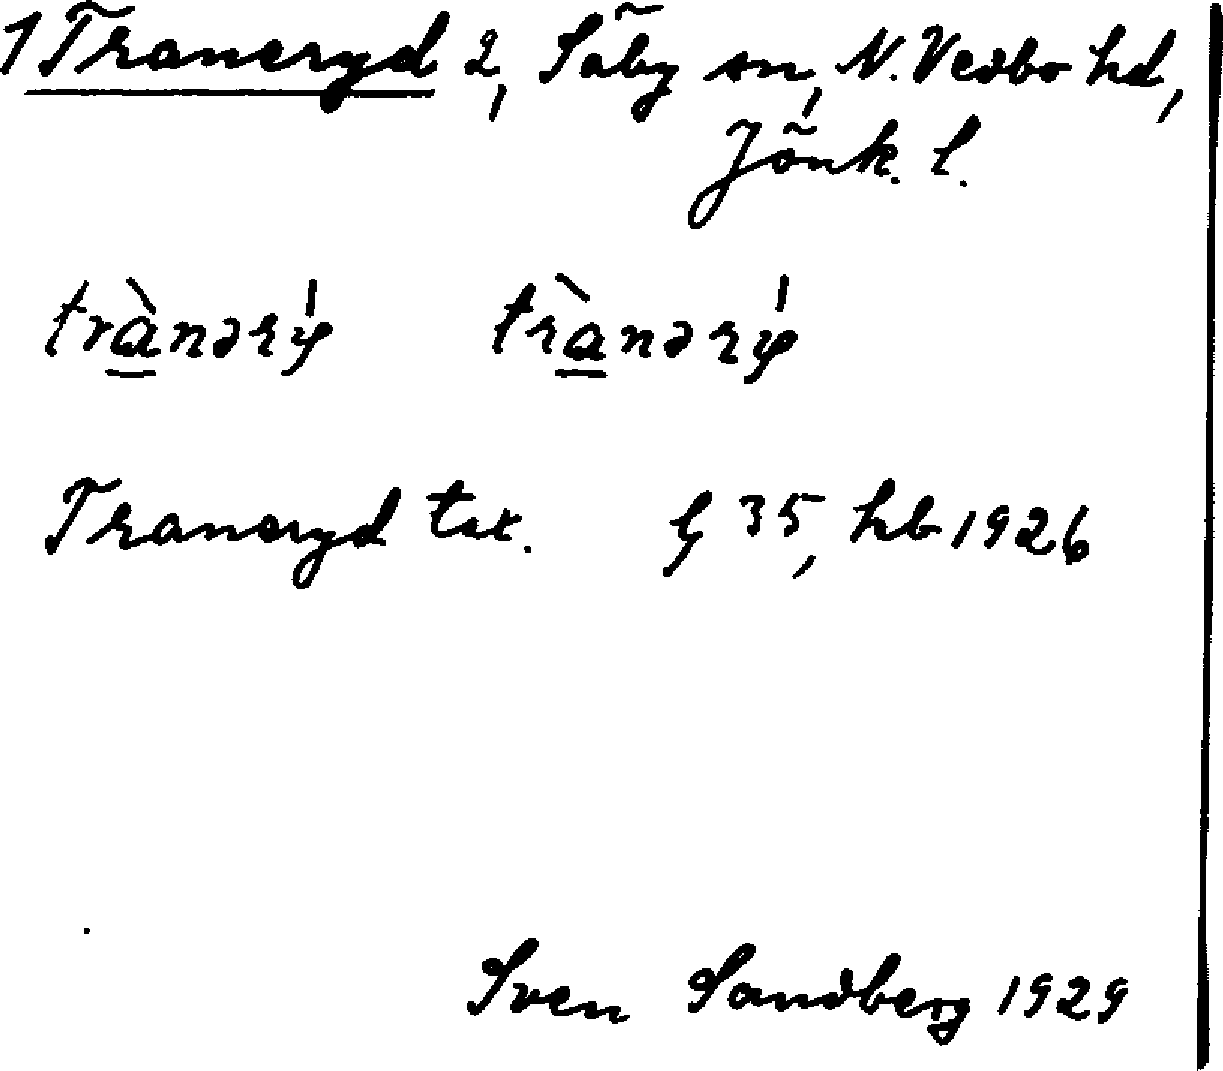 1 Traneryd 2, Säby sn, N. Vedbo hd,
Jönk. l.
trànərý trànərý
Traneryd tax. G 35, hb 1926
Sven Sandberg 1929